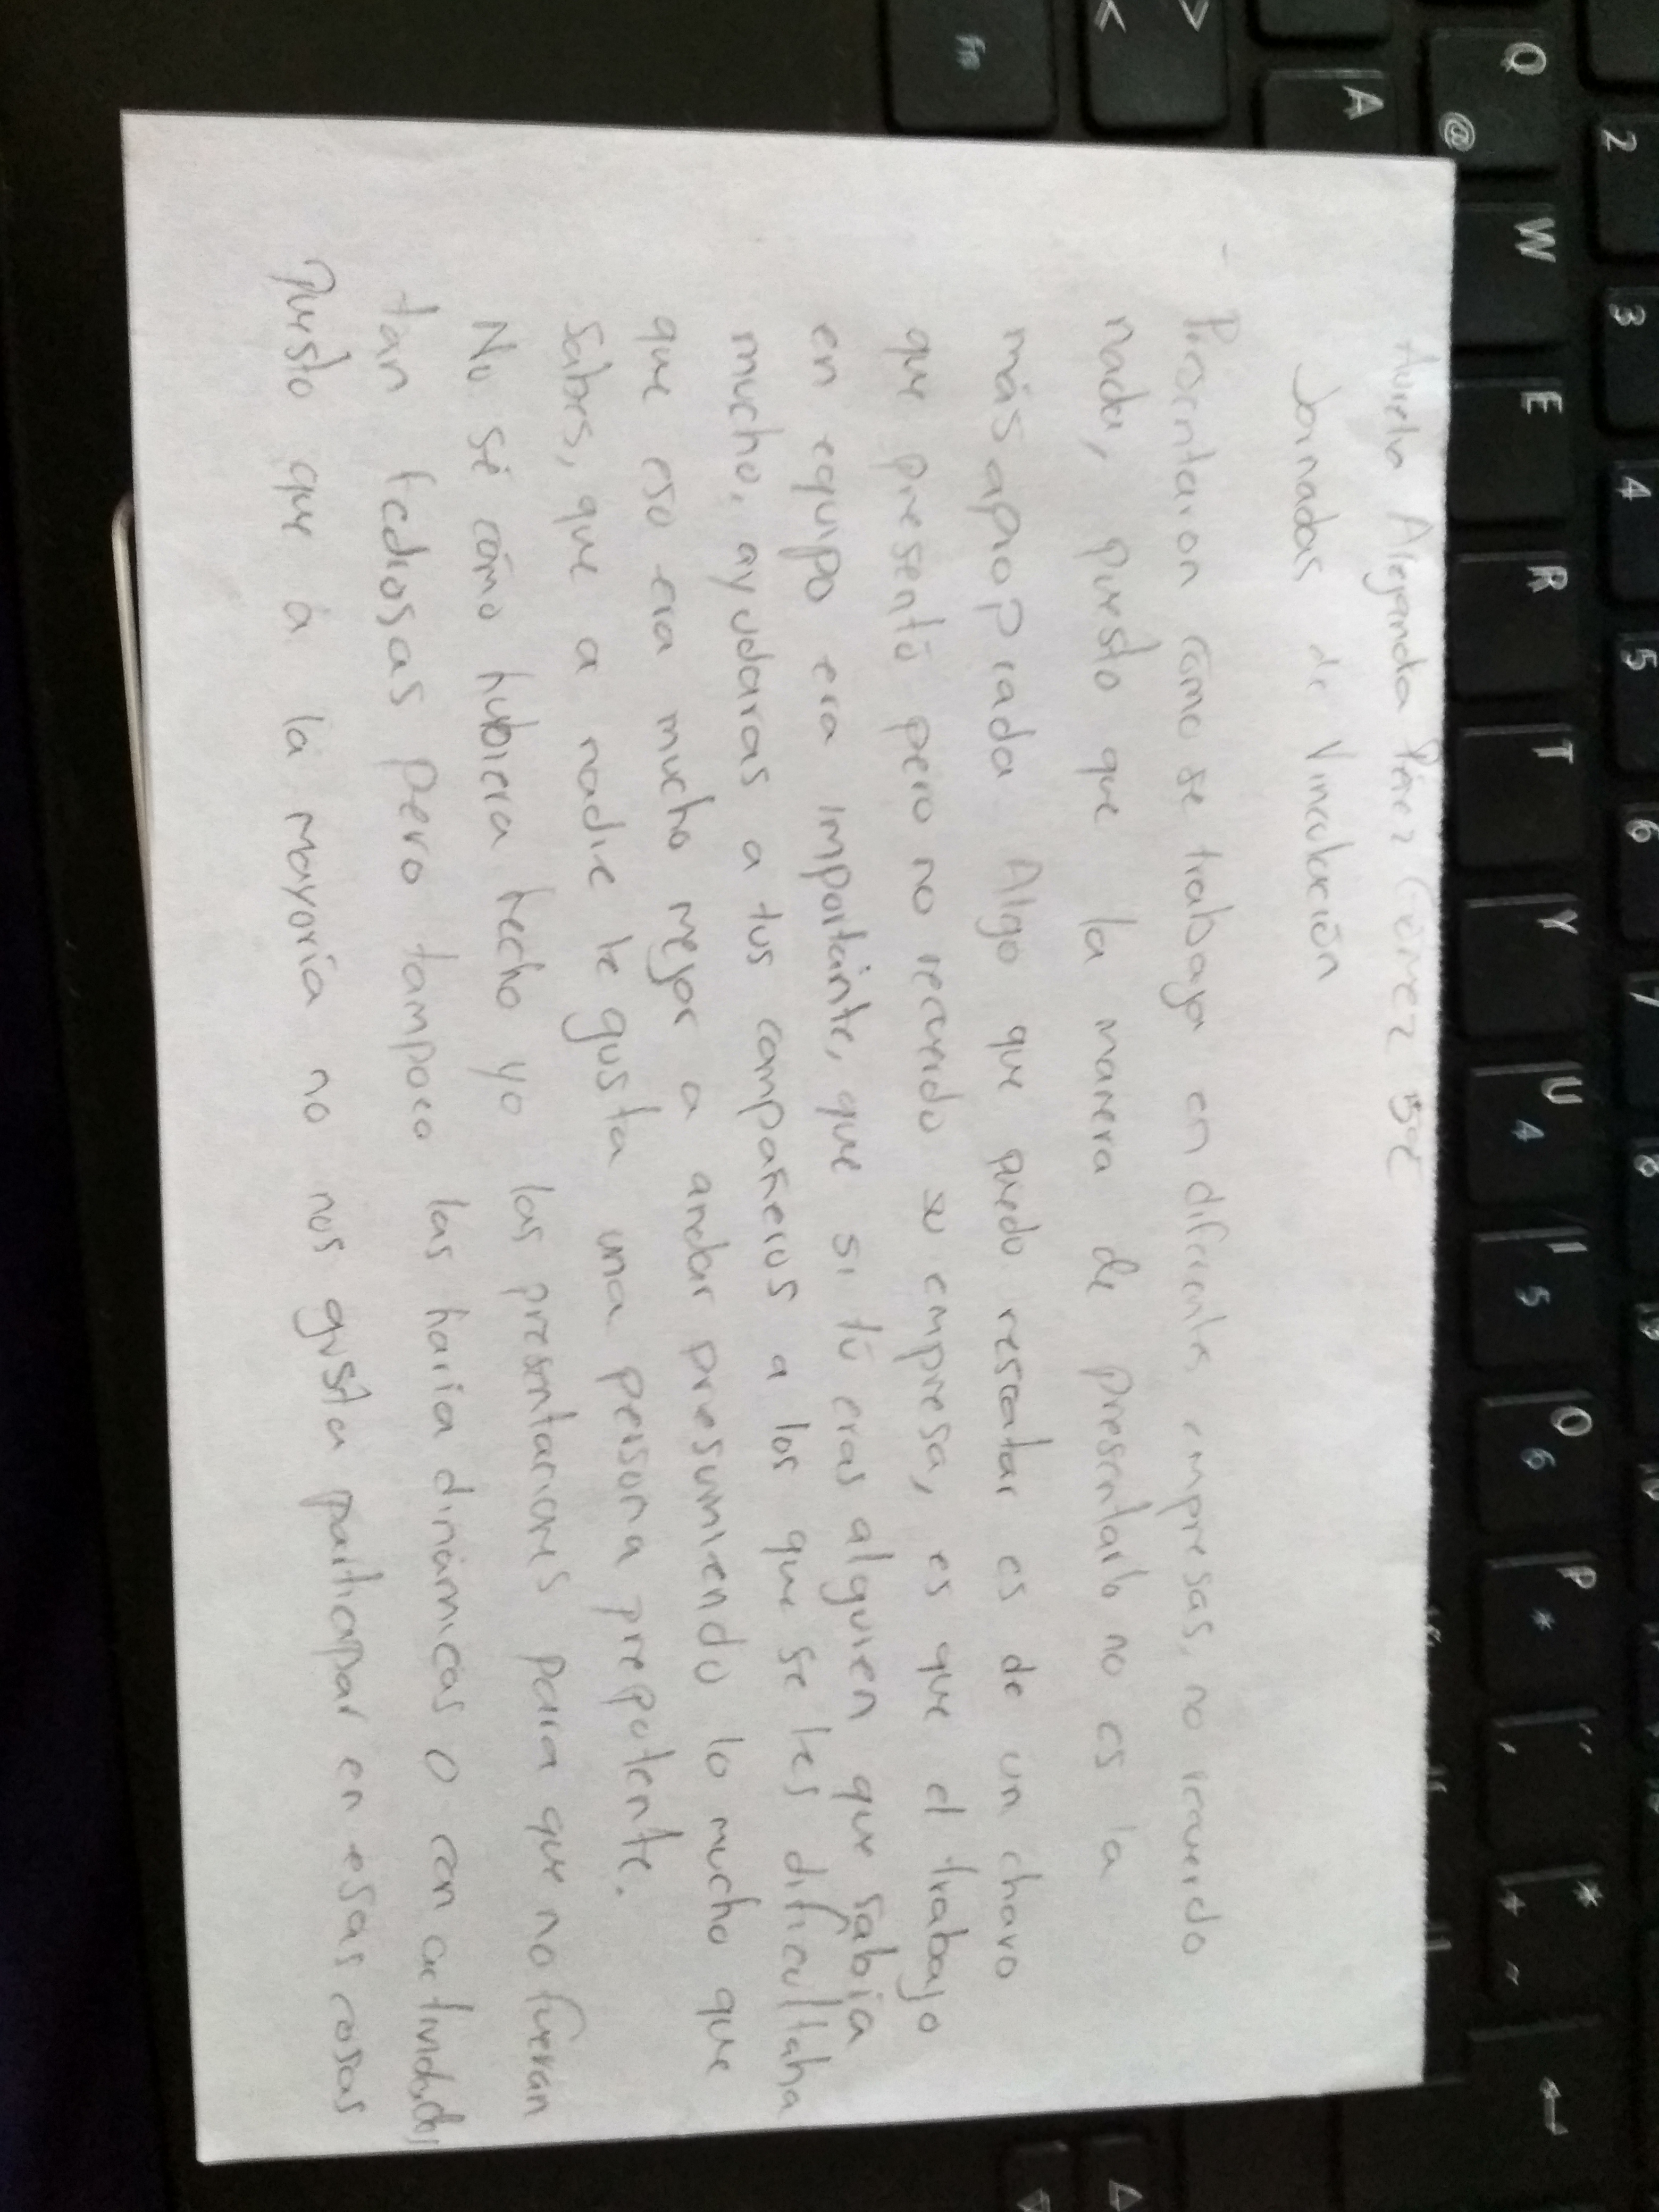 2 3 4 5 6 7 8 9
Q W E R T Y U 4 I 5 O 6 P *
@
A
Fn
Aurelia Alejandra Pérez Gómez 5°C
Jornadas de Vinculación
- Presentaron cómo se trabaja en diferentes empresas, no recuerdo
nada, puesto que la manera de presentarlo no es la
más apropiada Algo que puedo rescatar es de un chavo
que presentó pero no recuerdo su empresa, es que el trabajo
en equipo era importante, que si tú eras alguien que sabía
mucho, ayudaras a tus compañeros a los que se les dificultaba
que eso era mucho mejor a andar presumiendo lo mucho que
sabes, que a nadie le gusta una persona prepotente.
No sé cómo hubiera hecho yo las presentaciones para que no fueran
tan tediosas pero tampoco las haría dinámicas o con actividades
Puesto que a la mayoría no nos gusta participar en esas cosas